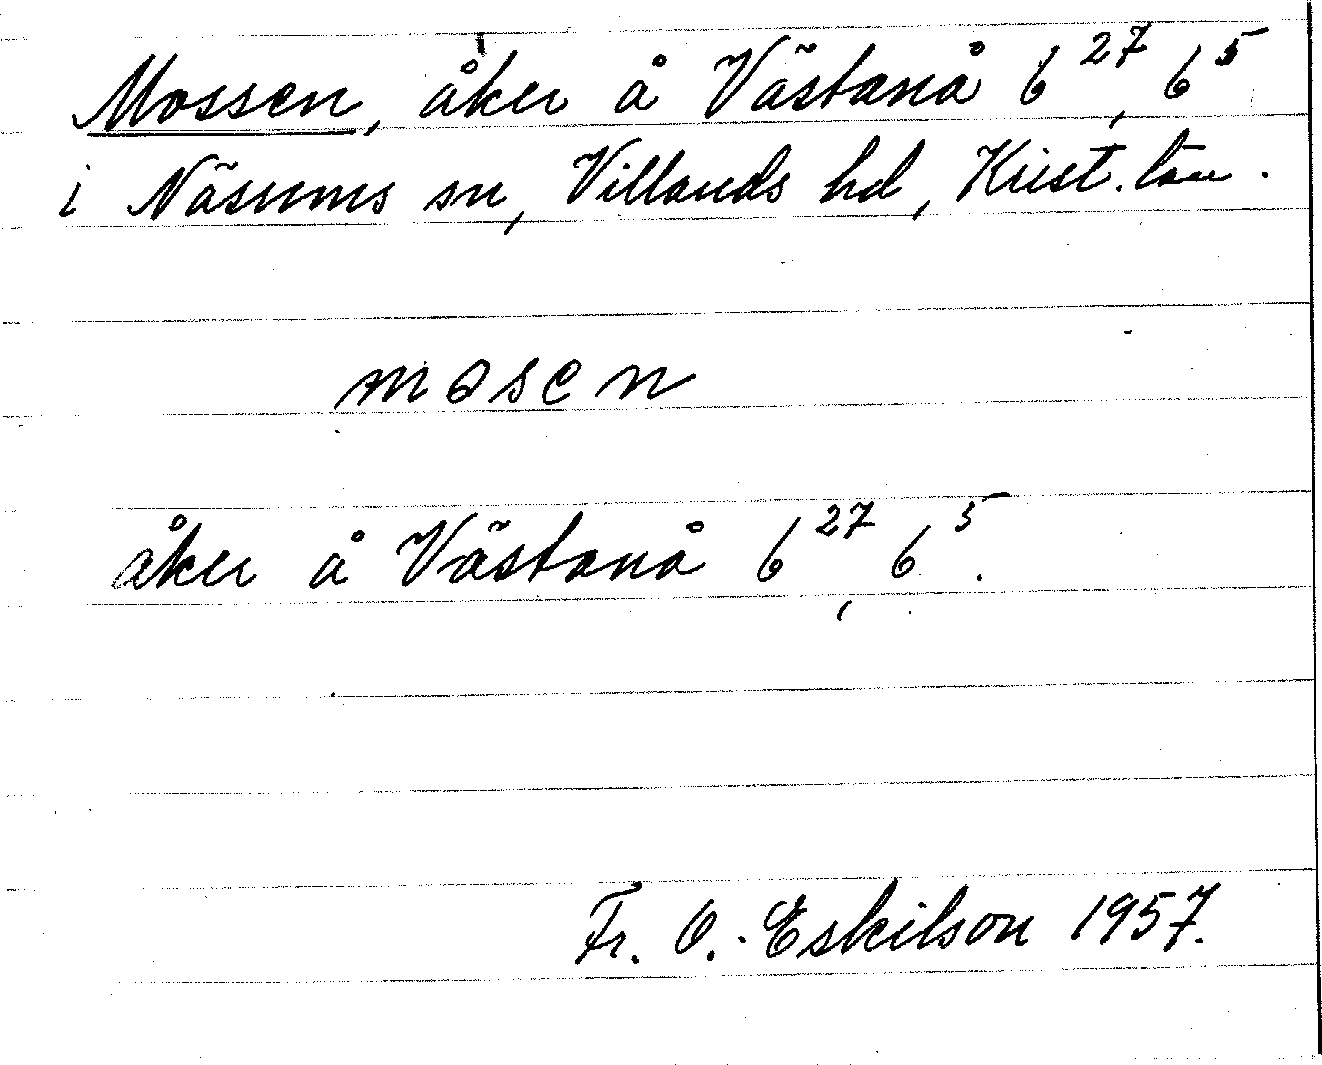 Mossen, åker å Västanå 6²⁷, 6⁵
i Näsums sn, Villands hd, Krist. län.
mosen
åker å Västanå 6²⁷, 6⁵.
Fr. O. Eskilson 1957.